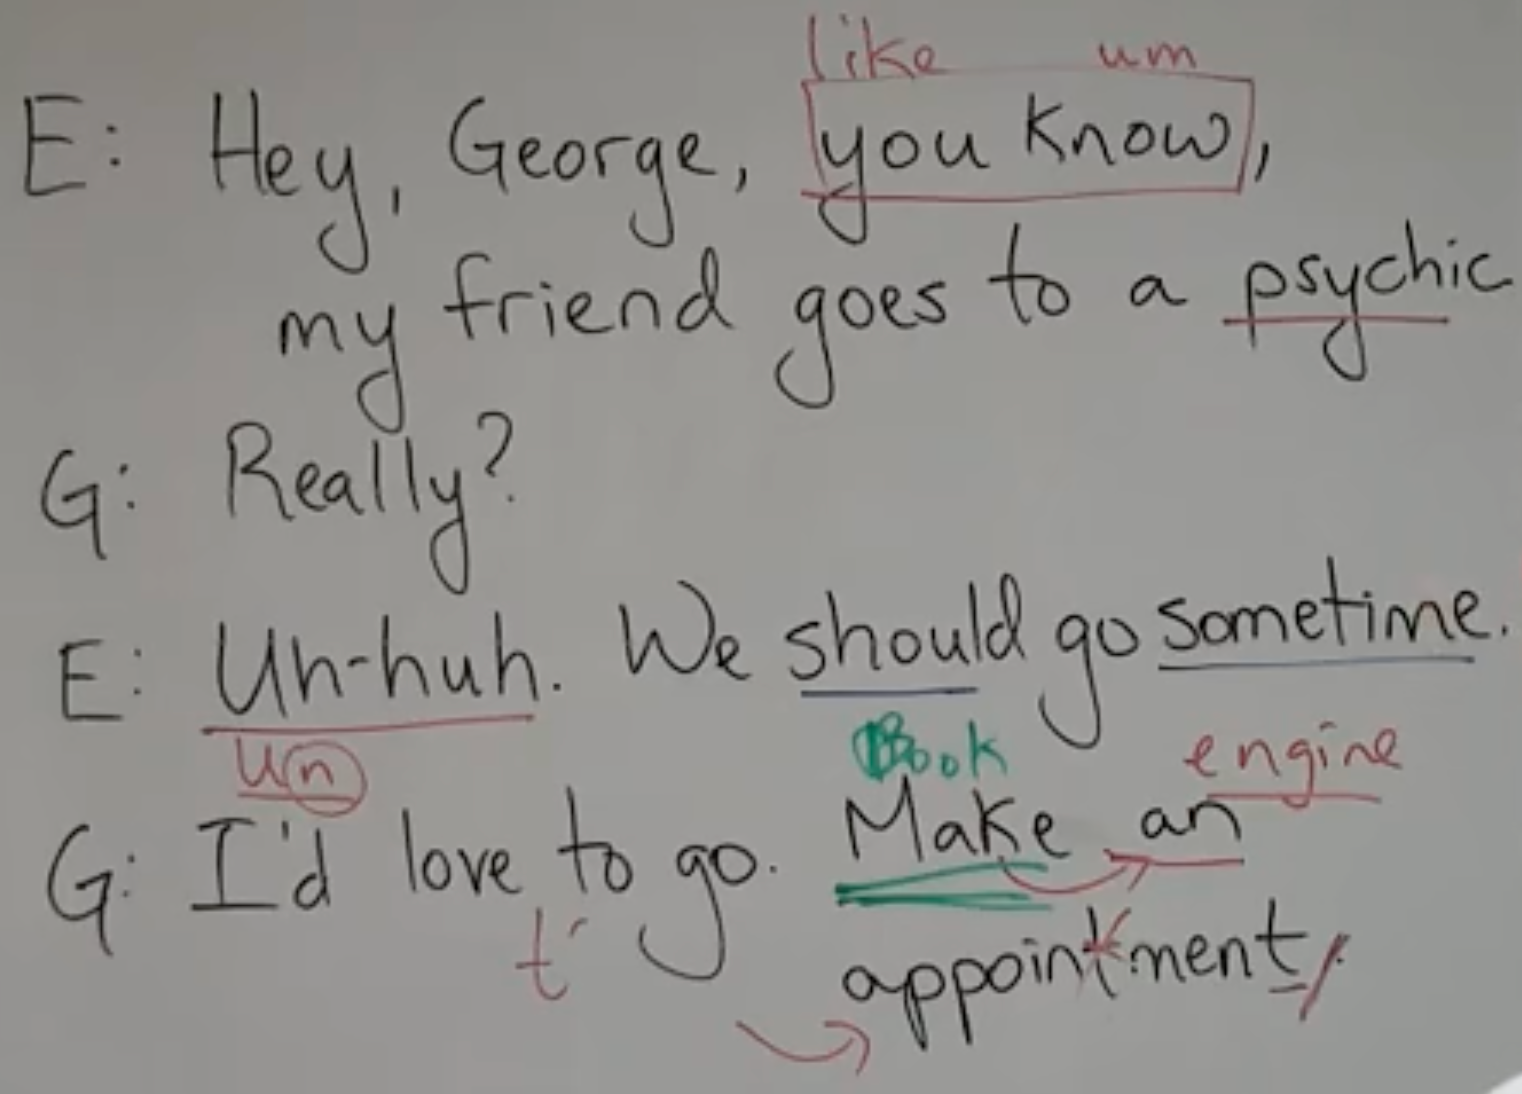 like um
E: Hey, George, you know,
my friend goes to a psychic
G: Really?
E: Uh-huh. We should go sometime.
Un Book engine
G: I'd love to go. Make an
t' appointment.